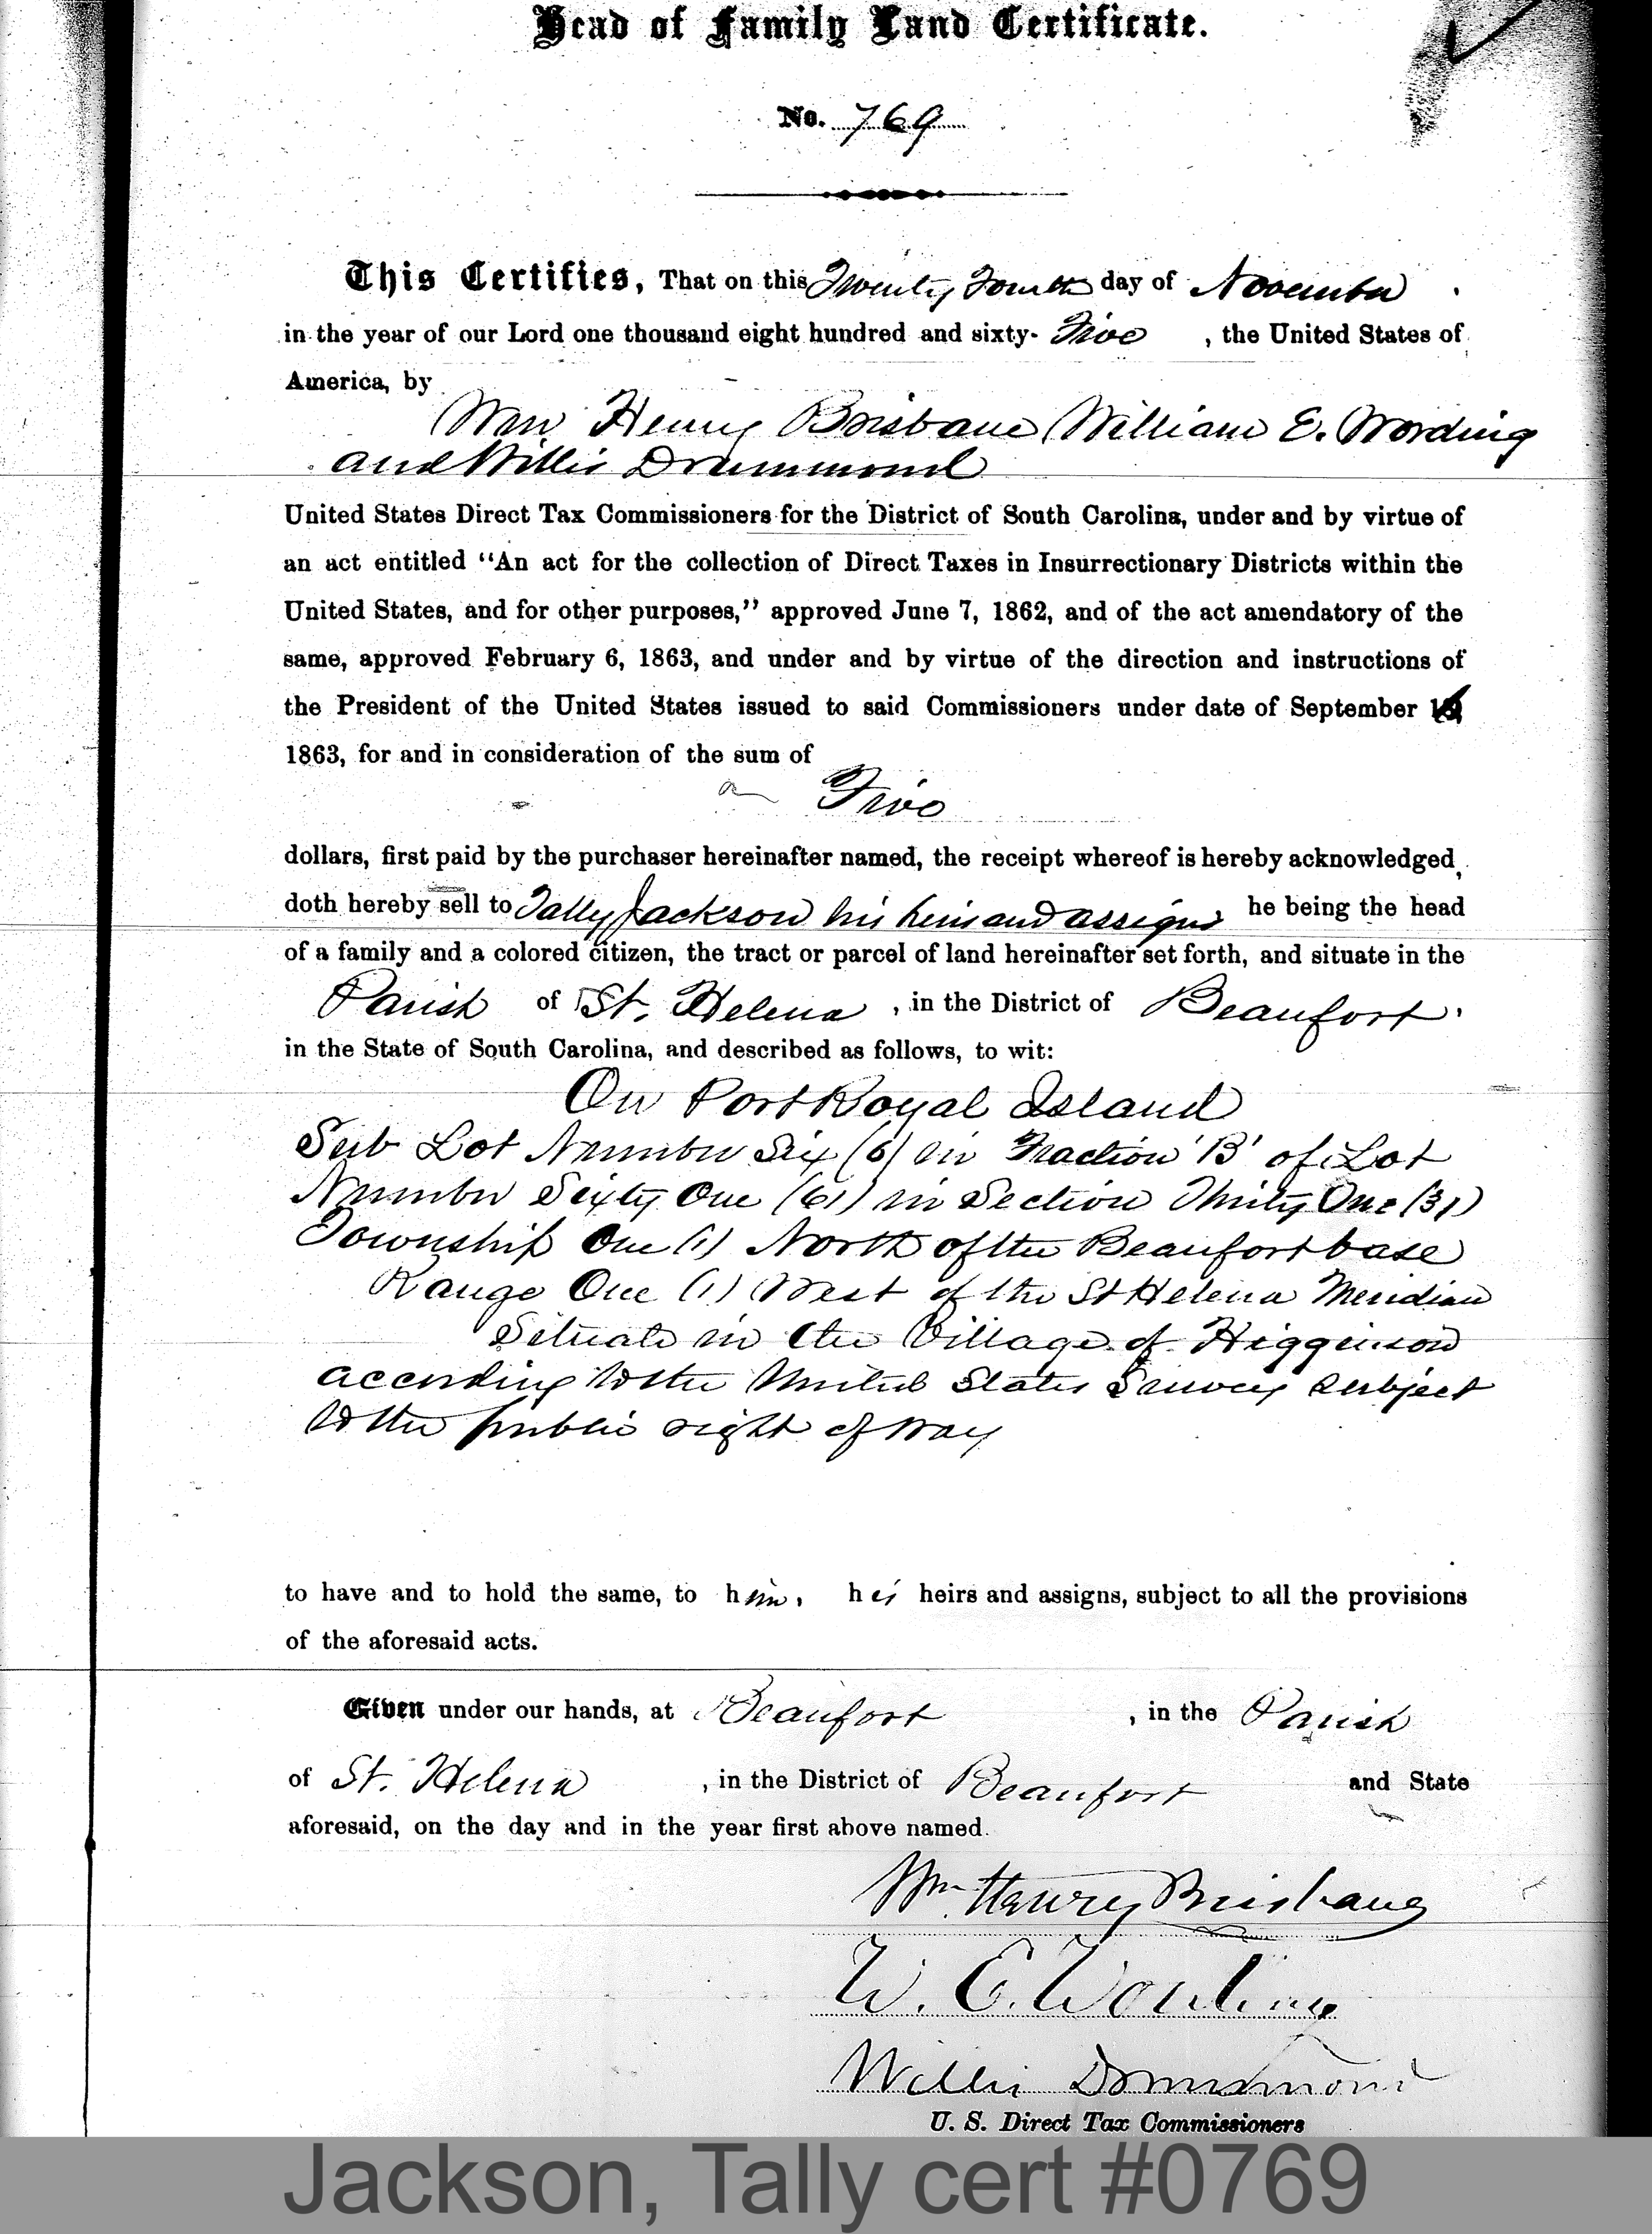 Head of Family Land Certificate.
No. 769
This Certifies, That on this Twenty Fourth day of November
in the year of our Lord one thousand eight hundred and sixty- Five , the United States of
America, by
Wm Henry Brisbane William E. Wording
and Willis Drummond
United States Direct Tax Commissioners for the District of South Carolina, under and by virtue of
an act entitled “An act for the collection of Direct Taxes in Insurrectionary Districts within the
United States, and for other purposes,” approved June 7, 1862, and of the act amendatory of the
same, approved February 6, 1863, and under and by virtue of the direction and instructions of
the President of the United States issued to said Commissioners under date of September
1863, for and in consideration of the sum of
Five
dollars, first paid by the purchaser hereinafter named, the receipt whereof is hereby acknowledged,
doth hereby sell to Tally Jackson his heirs and assigns he being the head
of a family and a colored citizen, the tract or parcel of land hereinafter set forth, and situate in the
Parish of St. Helena , in the District of Beaufort.
in the State of South Carolina, and described as follows, to wit:
On Port Royal Island
Sub Lot Number Six (6) in Fraction 'B' of Lot
Number Sixty One (61) in Section Thirty One (31)
Township One (1) North of the Beaufort base
Range One (1) West of the St Helena Meridian
Situate in the Village of Higginson
according to the United States Survey subject
to the public right of way
to have and to hold the same, to him, his heirs and assigns, subject to all the provisions
of the aforesaid acts.
Given under our hands, at Beaufort , in the Parish
of St. Helena , in the District of Beaufort and State
aforesaid, on the day and in the year first above named.
Wm. Henry Brisbane
W. E. Wording
Willis Drummond
U. S. Direct Tax Commissioners
Jackson, Tally cert #0769